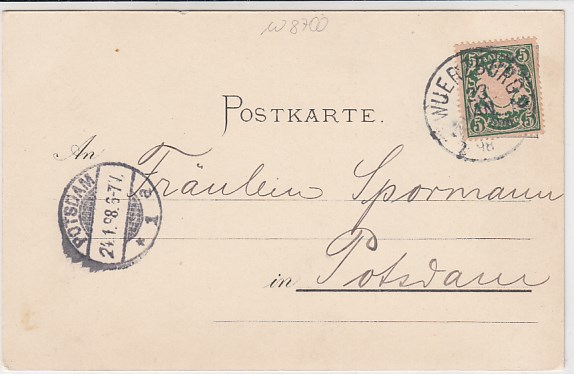 W8700
5 5
5 5
WUERZBURG 2
3
JAN
98
POSTKARTE.
An Fräulein Spormann
POTSDAM
24.1.98.6-7V.
* 1 a
in Potsdam